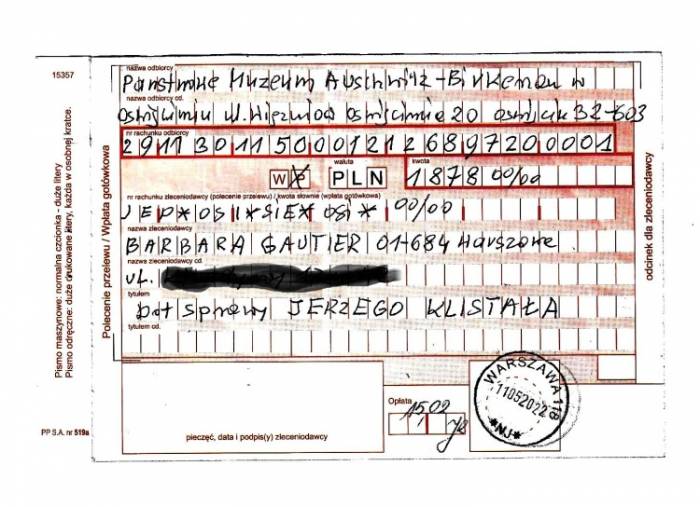 15357
nazwa odbiorcy
Państwowe Muzeum Auschwitz-Birkenau w
nazwa odbiorcy cd.
Oświęcimiu ul. Więźniów Oświęcimia 20 32-603
nr rachunku odbiorcy
29113011500012126897200001
waluta
kwota
W P PLN 1878 00/00
nr rachunku zleceniodawcy (polecenie przelewu) / kwota słownie (wpłata gotówkowa)
JED*OSI*SIE*OSI* 00/00
nazwa zleceniodawcy
BARBARA GAUTIER 01-684 Warszawa
nazwa zleceniodawcy cd.
ul.
tytułem
dot sprawy JERZEGO KLISTAŁA
tytułem cd.
pieczęć, data i podpis(y) zleceniodawcy
Opłata
15,02
WARSZAWA 118
11052022
*NJ*
Polecenie przelewu / Wpłata gotówkowa
Pismo maszynowe: normalna czcionka - duże litery
Pismo odręczne: duże drukowane litery, każda w osobnej kratce.
PP S.A. nr 519a
odcinek dla zleceniodawcy